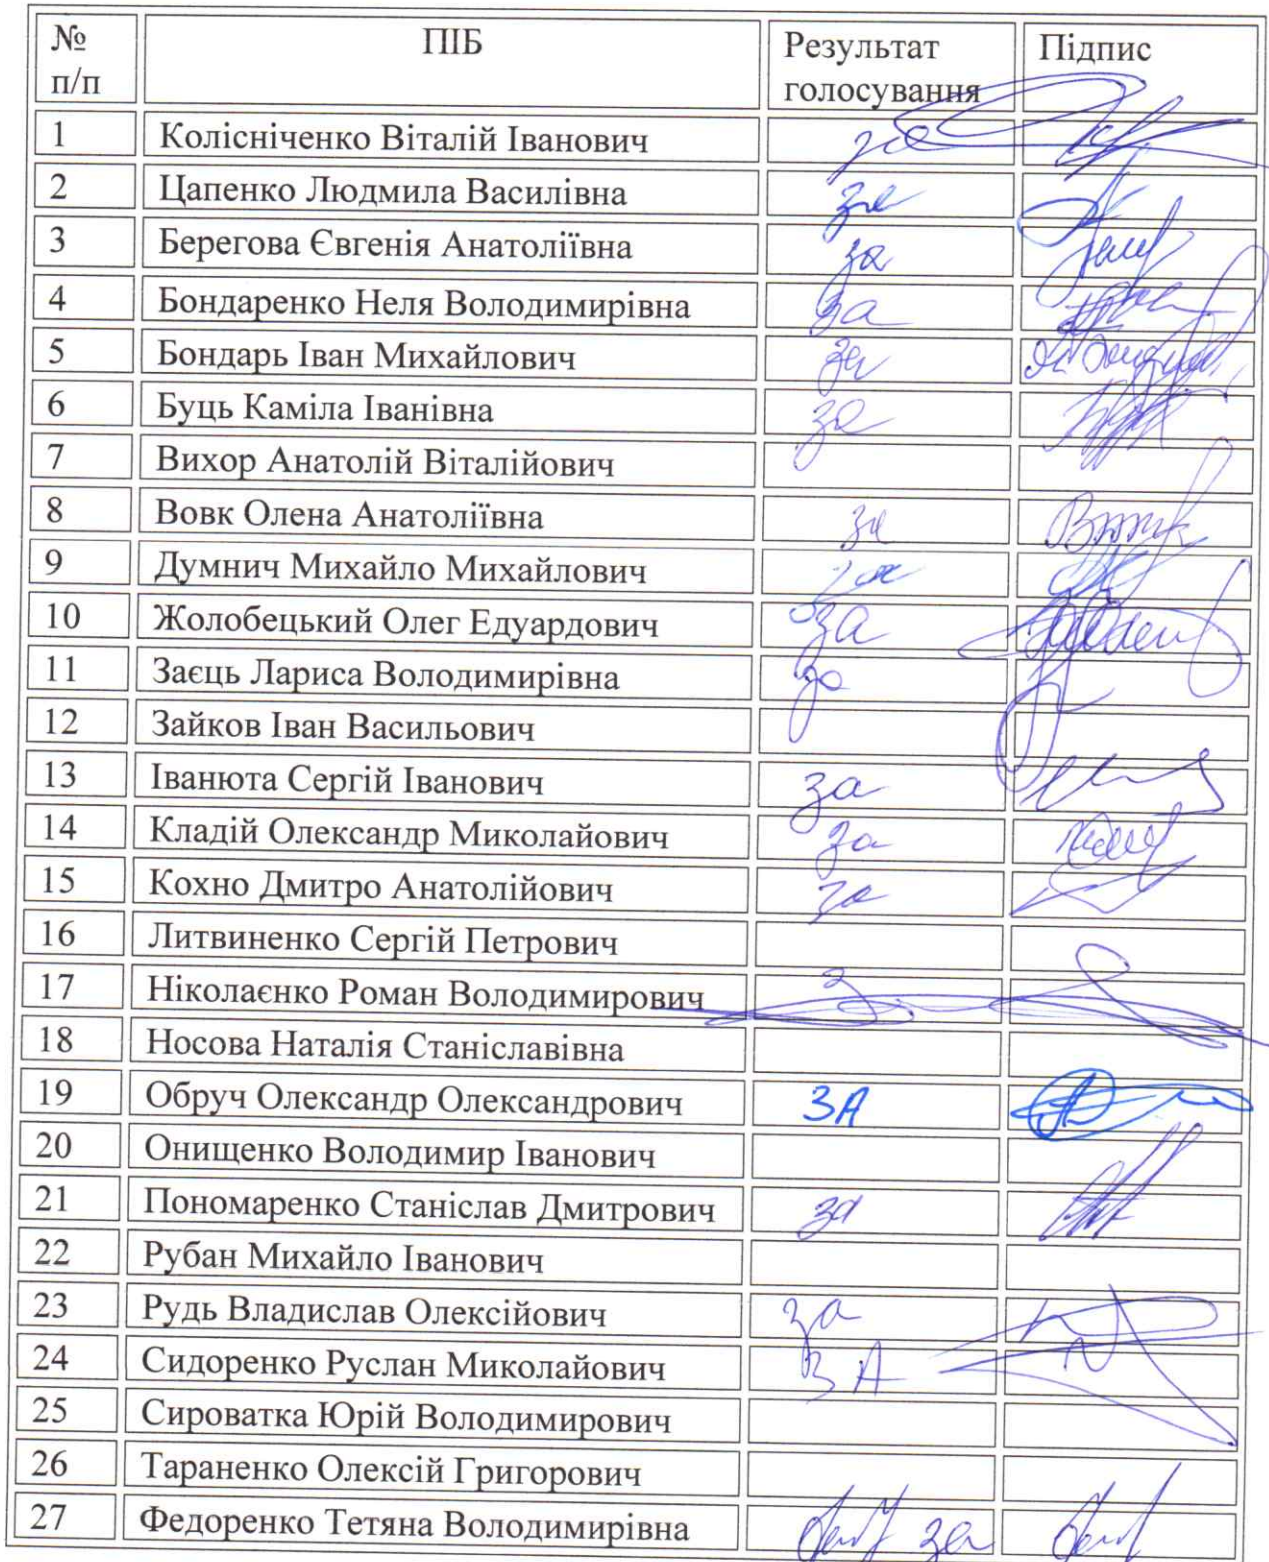 № п/п ПІБ Результат голосування Підпис
1 Колісніченко Віталій Іванович за
2 Цапенко Людмила Василівна за
3 Берегова Євгенія Анатоліївна за
4 Бондаренко Неля Володимирівна за
5 Бондарь Іван Михайлович за
6 Буць Каміла Іванівна за
7 Вихор Анатолій Віталійович
8 Вовк Олена Анатоліївна за
9 Думнич Михайло Михайлович за
10 Жолобецький Олег Едуардович за
11 Заєць Лариса Володимирівна за
12 Зайков Іван Васильович
13 Іванюта Сергій Іванович за
14 Кладій Олександр Миколайович за
15 Кохно Дмитро Анатолійович за
16 Литвиненко Сергій Петрович
17 Ніколаєнко Роман Володимирович
18 Носова Наталія Станіславівна
19 Обруч Олександр Олександрович ЗА
20 Онищенко Володимир Іванович
21 Пономаренко Станіслав Дмитрович за
22 Рубан Михайло Іванович
23 Рудь Владислав Олексійович за
24 Сидоренко Руслан Миколайович ЗА
25 Сироватка Юрій Володимирович
26 Тараненко Олексій Григорович
27 Федоренко Тетяна Володимирівна за